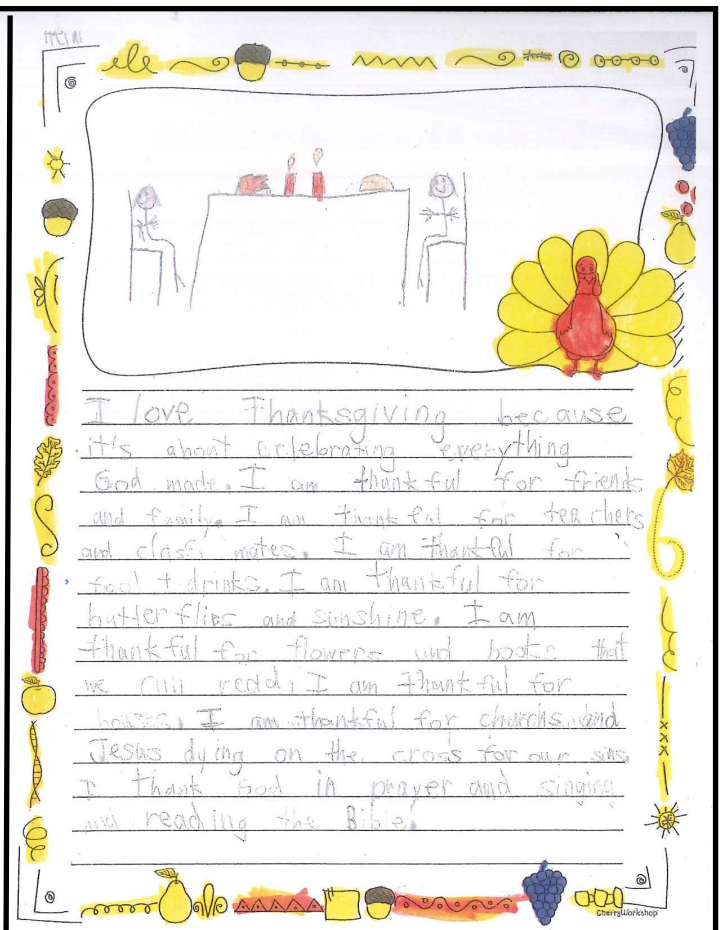 I love Thanksgiving because
it's about celebrating everything
God made. I am thankful for friends
and family. I am thankful for teachers
and class mates. I am thankful for
food + drinks. I am thankful for
butterflies and sunshine. I am
thankful for flowers and books that
we can read. I am thankful for
houses. I am thankful for churchs and
Jesus dying on the cross for our sins.
I thank God in prayer and singing
and reading the Bible.
CherryWorkshop